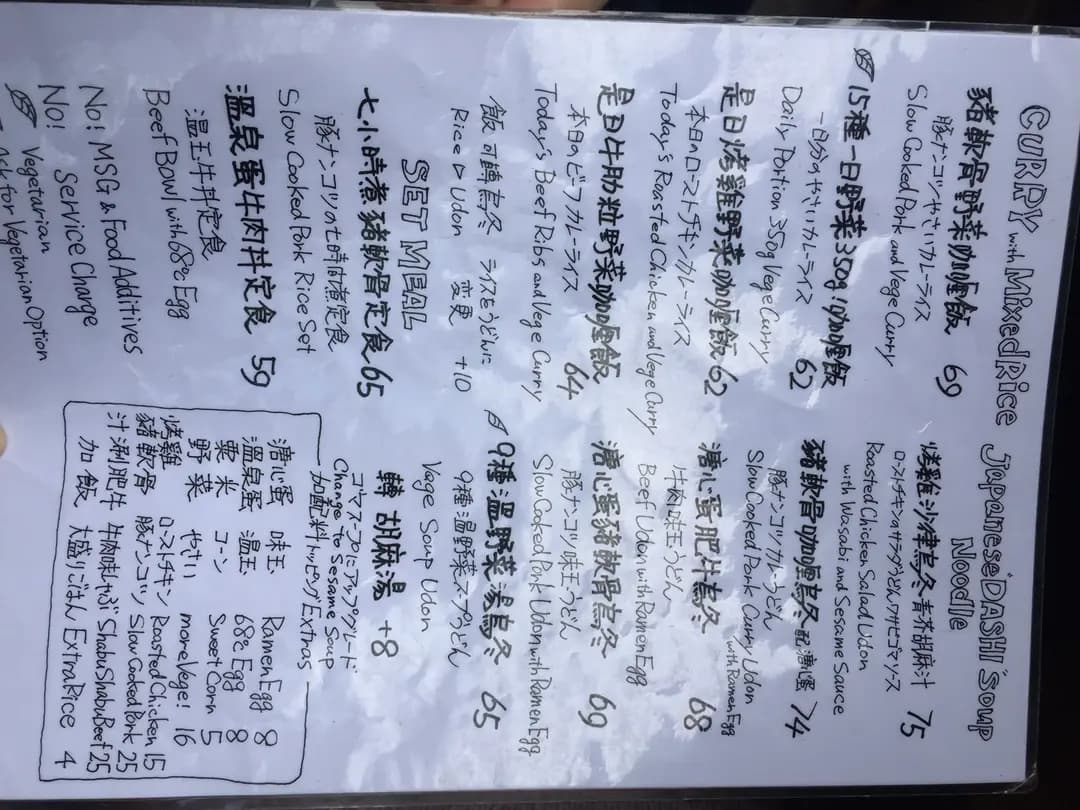 CURRY with Mixed Rice
豬軟骨野菜咖喱飯 69
豚ナンコツやさいカレーライス
Slow Cooked Pork and Vege Curry
15種一日野菜350g!咖喱飯
一日分のやさいカレーライス 62
Daily Portion 350g Vege Curry
是日烤雞野菜咖喱飯 62
本日のローストチキンカレーライス
Today's Roasted Chicken and Vege Curry
是日牛肋粒野菜咖喱飯
本日のビーフカレーライス 64
Today's Beef Ribs and Vege Curry
飯可轉烏冬 ライスをうどんに
Rice Udon 変更 +10
SET MEAL
七小時煮豬軟骨定食 65
豚ナンコツの七時間煮定食
Slow Cooked Pork Rice Set
溫泉蛋牛肉丼定食 59
温玉牛丼定食
Beef Bowl with 68℃ Egg
No! MSG & Food Additives
No! Service Charge
Vegetarian
Ask for Vegetarian Option
Japanese "DASHI" Soup
Noodle
烤雞沙律烏冬 青芥胡麻汁 75
ローストチキンのサラダうどんワサビゴマソース
Roasted Chicken Salad Udon
with Wasabi and Sesame Sauce
豬軟骨咖喱烏冬 配溏心蛋 74
豚ナンコツカレーうどん
Slow Cooked Pork Curry Udon
with Ramen Egg
溏心蛋肥牛烏冬 68
牛肉味玉うどん
Beef Udon with Ramen Egg
溏心蛋豬軟骨烏冬 69
豚ナンコツ味玉うどん
Slow Cooked Pork Udon with Ramen Egg
9種溫野菜湯烏冬 65
9種温野菜スープうどん
Vege Soup Udon
轉胡麻湯 +8
ゴマスープにアップグレード
Change to Sesame Soup
加配料 トッピング Extras
溏心蛋 味玉 Ramen Egg 8
溫泉蛋 温玉 68℃ Egg 8
粟米 コーン Sweet Corn 5
野菜 やさい more Vege! 16
烤雞 ローストチキン Roasted Chicken 15
豬軟骨 豚ナンコツ Slow Cooked Pork 25
汁涮肥牛 牛肉味しゃぶ Shabu Shabu Beef 25
加飯 大盛りごはん Extra Rice 4